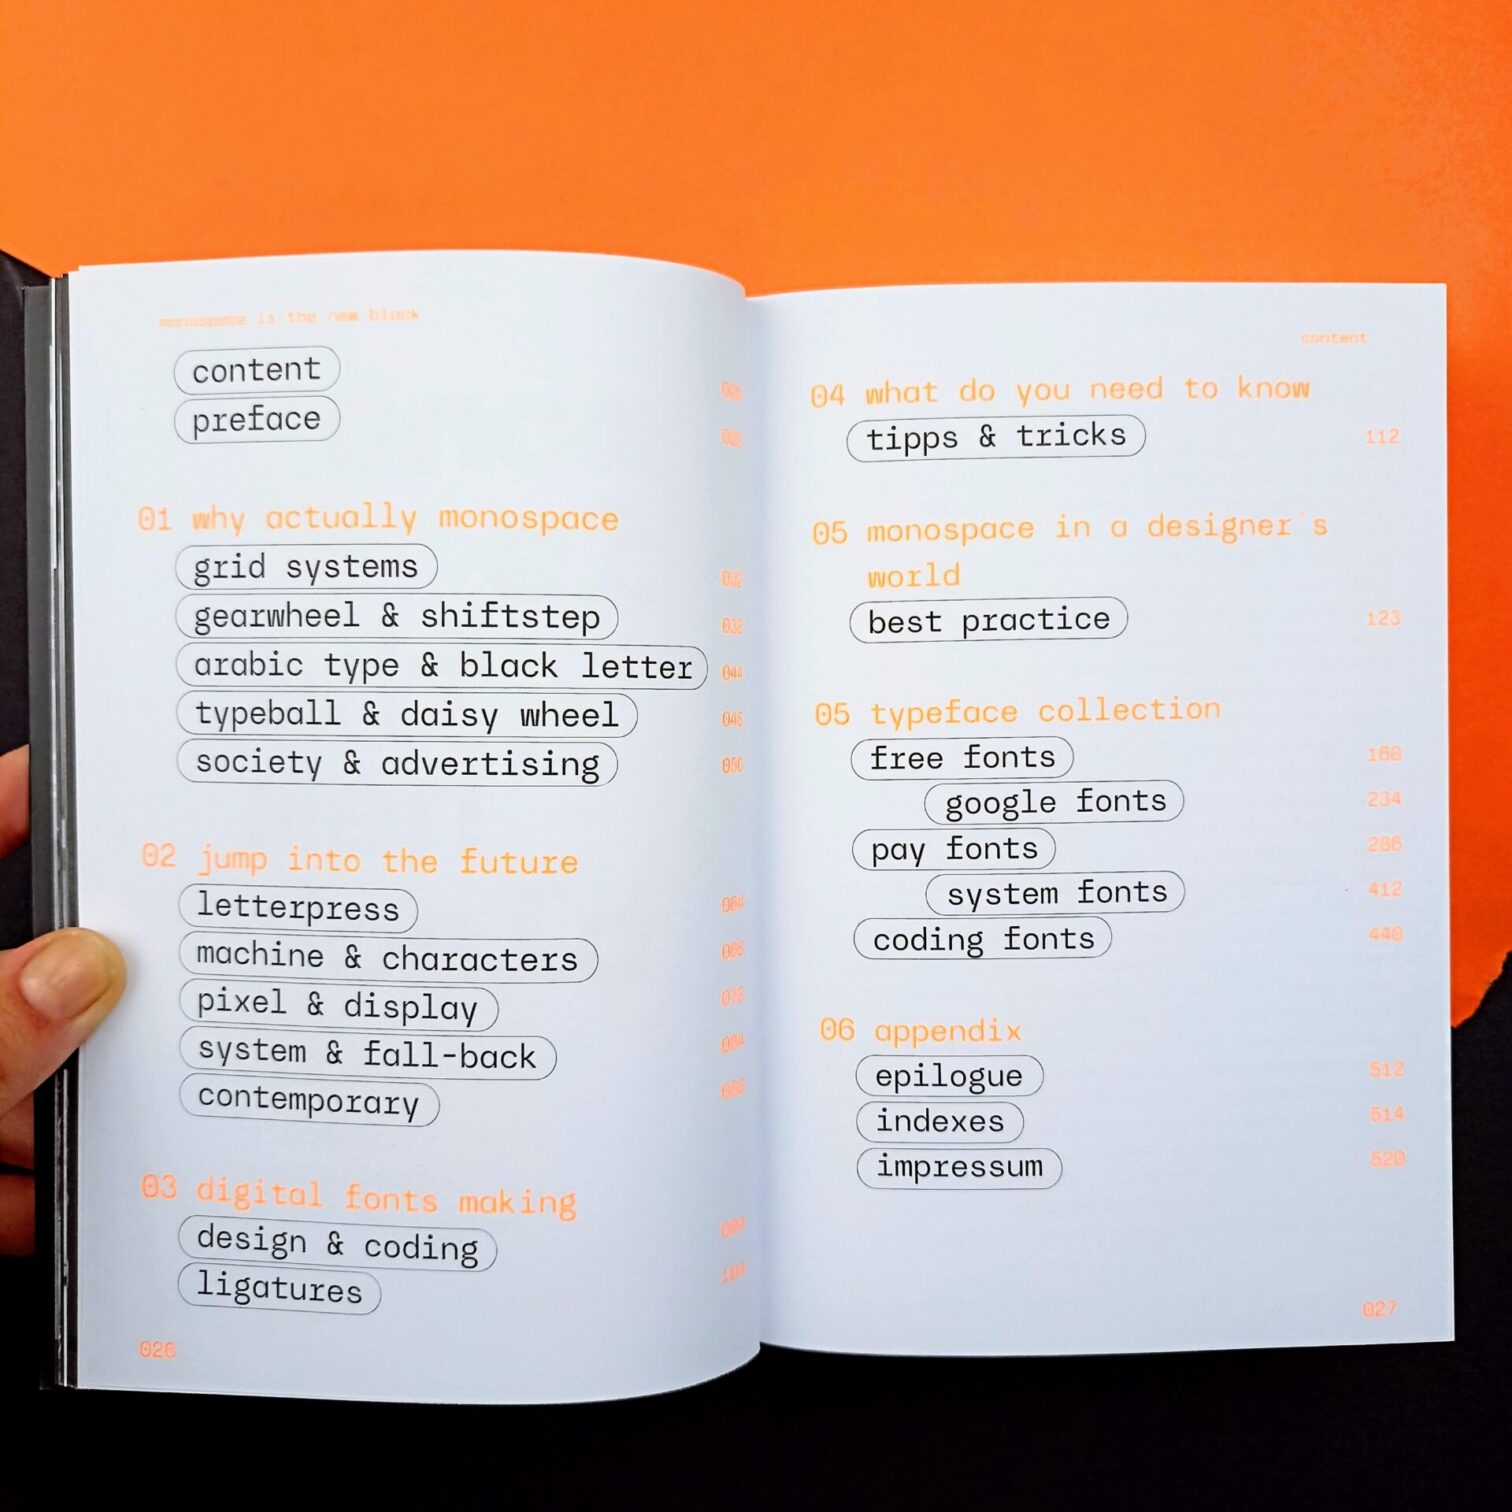 monospace is the new black
content
preface
01 why actually monospace
grid systems
gearwheel & shiftstep 038
arabic type & black letter 044
typeball & daisy wheel
society & advertising
02 jump into the future
letterpress 064
machine & characters 068
pixel & display 078
system & fall-back 084
contemporary
03 digital fonts making
design & coding
ligatures
026
content
04 what do you need to know
tipps & tricks 112
05 monospace in a designer's
world
best practice 123
05 typeface collection
free fonts 160
google fonts 234
pay fonts 286
system fonts 412
coding fonts 440
06 appendix
epilogue 512
indexes 514
impressum 520
027